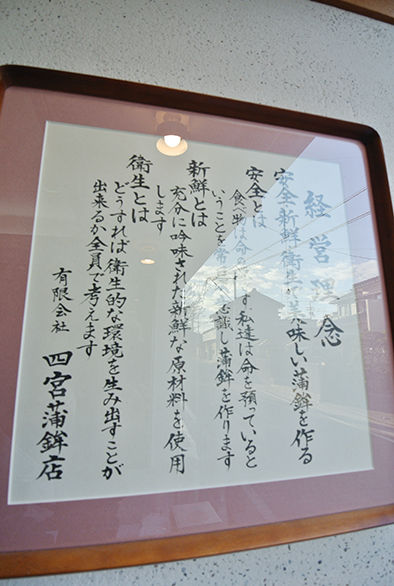 経営理念
安全新鮮衛生で美味しい蒲鉾を作る
安全とは
食べ物は命の す私達は命を預っていると
いうことを常に意識し蒲鉾を作ります
新鮮とは
充分に吟味された新鮮な原材料を使用
します
衛生とは
どうすれば衛生的な環境を生み出すことが
出来るか全員で考えます
有限会社 四宮蒲鉾店